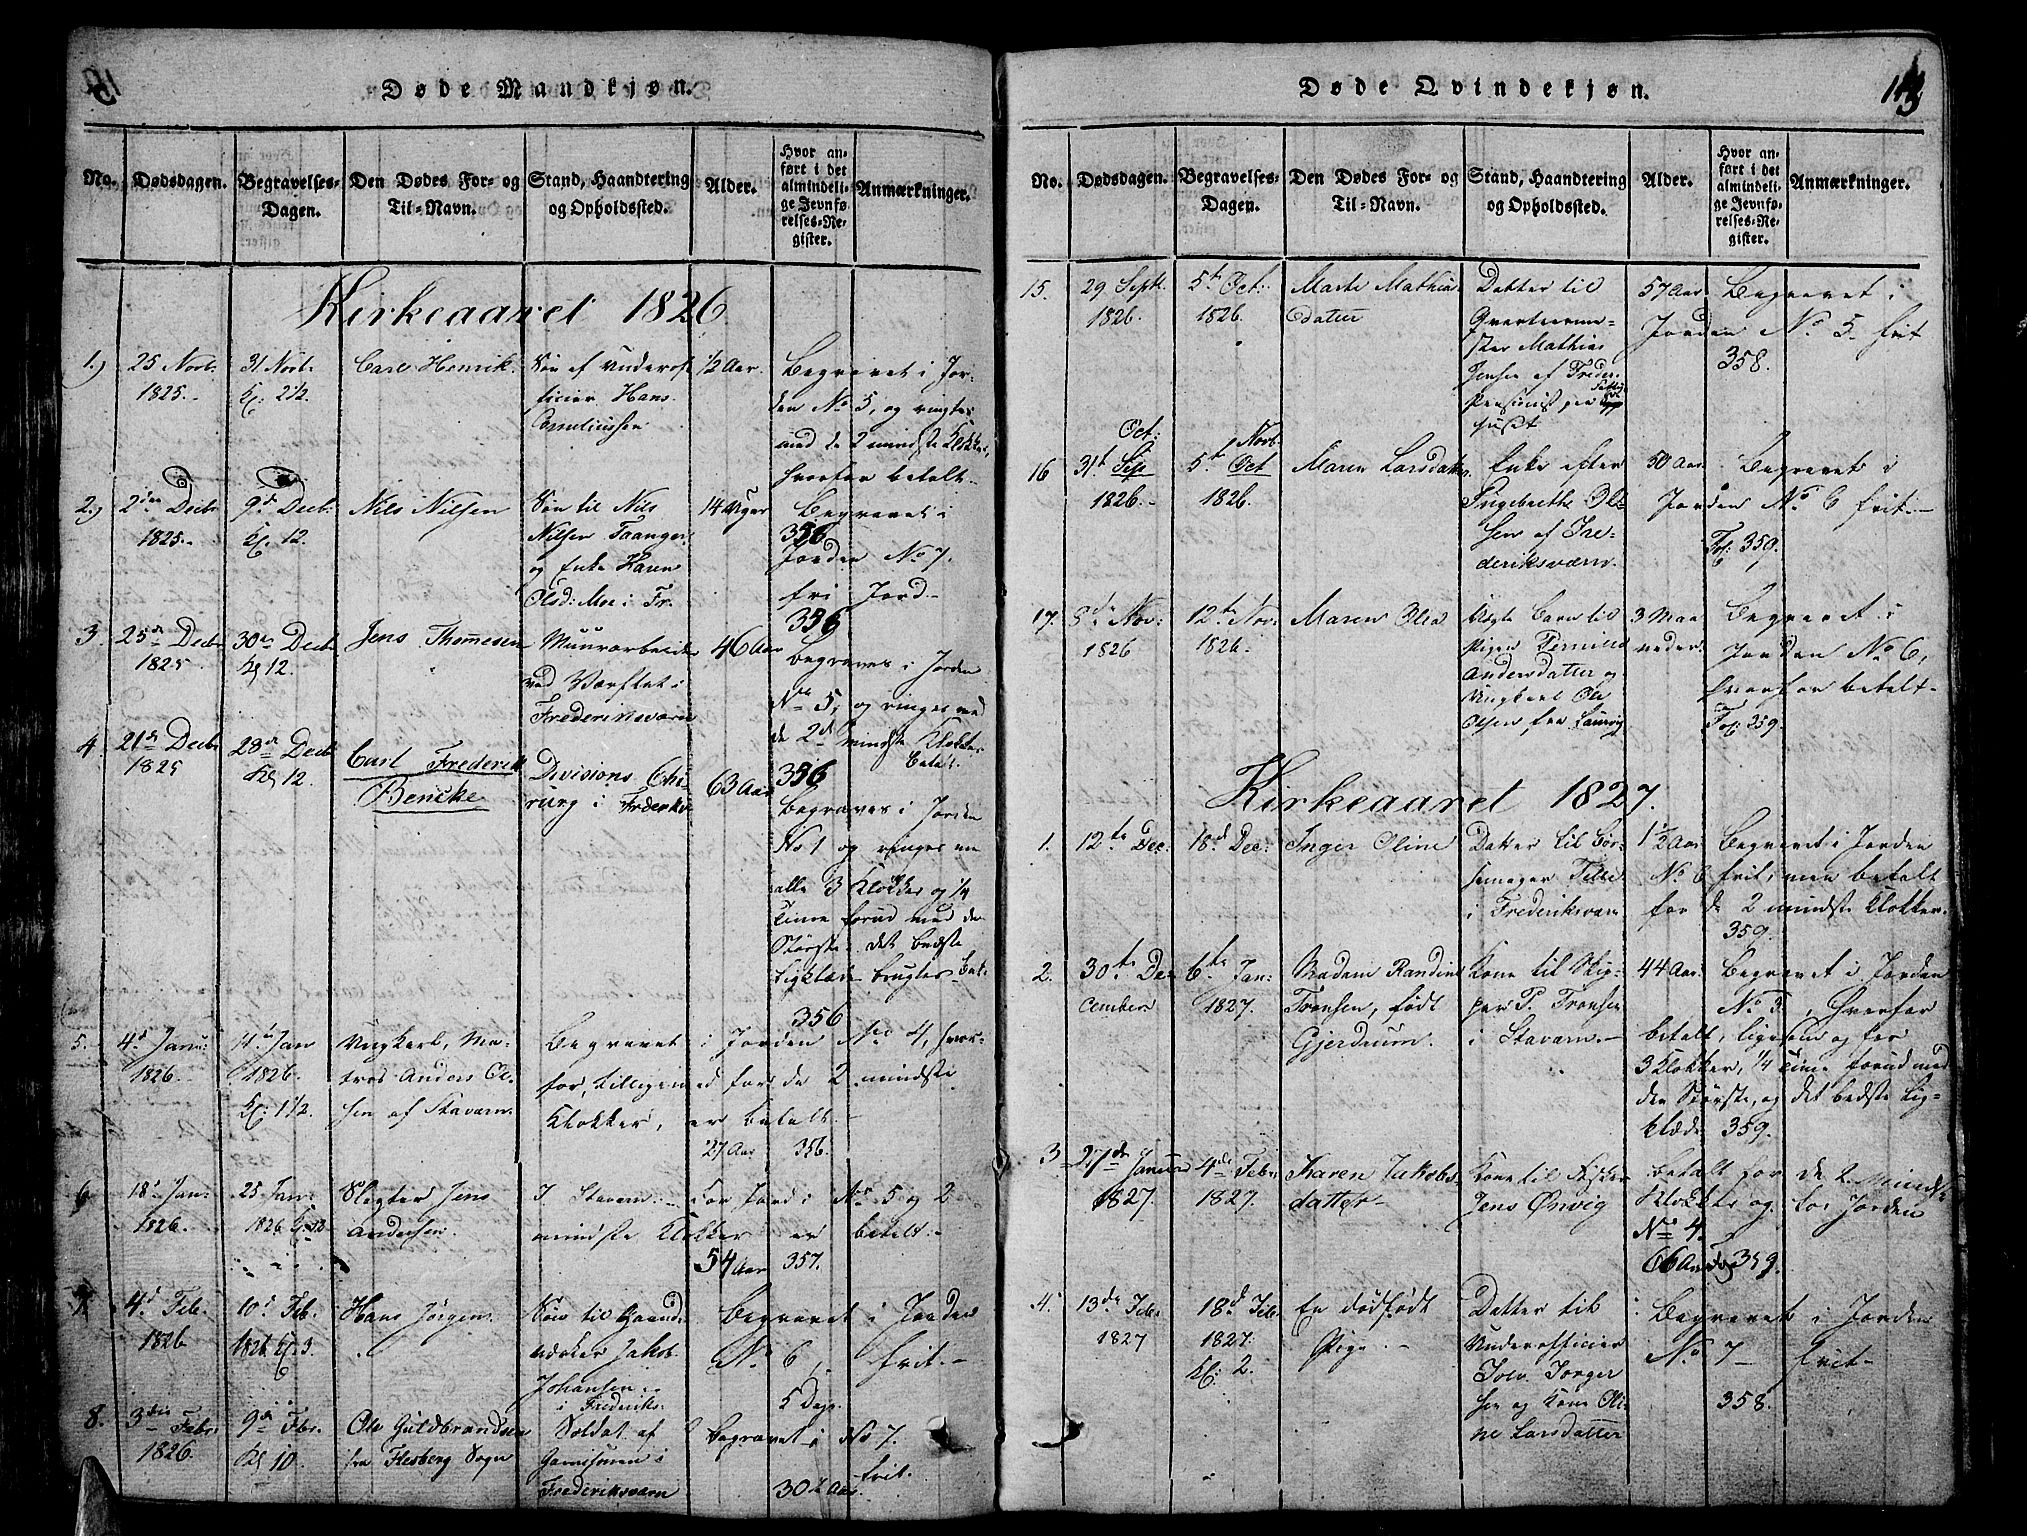 Døde Mandkjøn.
No.
Dødsdagen.
Begravelses-
Dagen.
Den Dødes For- og
Til-Navn.
Stand, Haandtering
og Opholdssted.
Alder.
Hvor an-
ført i det
almindeli-
ge Jevnfø-
relses-Re-
gister.
Anmærkninger.
Kirkeaaret 1826
1.)
25 Novb:
1825.
31 Novb:
Kl. 2 1/2.
Carl Henrik.
Søn af Underof-
ficier Hans
Corneliussen
1/2 Aar.
Begravet i Jor-
den No 5, og ringtes
med de 2 mindste Klokker,
hvorfor betalt.
356
2.)
2den Decbr
1825.
9d Decbr:
Kl. 12.
Nils Nilsen
Søn til Nils
Nilsen Taanger
og Enke Karen
Olsd: Moe i Fr.
14 Uger
Begravet i
Jorden No 7.
fri Jord.
356
3.
25de Decbr
1825
30te Decbr
Kl 12.
Jens Thomesen
Muurarbeider
ved Værftet i
Frederiksværn
46 Aar
begraves i Jorden
No 5, og ringes med
de 2de mindste Klokker
Betalt.
356
4.
21de Decbr
1825
28de Decbr
Kl 12.
Carl Frederik
Bencke
Divisions Chi-
rurg i Frderiksv
63 Aar
begraves i Jorden
No 1 og ringes med
alle 3 Klokker og 1/4
Time forud med den
Største. det bedste
Ligklæde brugtes. Bet.
356
5.
4d Janu:
1826.
14d Jan
1826.
Kl: 1 1/2.
Ungkarl, Ma-
tros Anders Ol-
sen af Staværn.
Begravet i Jorden No 4, hvor-
for, tilligemed for de 2 mindste
Klokker, er betalt.
27 Aar 356.
6
18d Jan:
1826.
25 Jan:
1826.
Slagter Jens
Andersen.
I Stavern. For Jord i No 5 og 2
mindste Klokker er betalt.
54 Aar 357.
7.
4d Feb.
1826
10d Feb.
1826 Kl. 3.
Hans Jørgen.
Søn til Haand-
værker Jakob
Johansen
i Frederiks.
Begravet i Jorden
No 6, frit.
5 Dage
8.
3die Febr:
1826.
9de Fbr.
Kl 10.
Ole Guldbrandsen
fra Flesberg Sogn
Soldat af
Garnisonen i
Frederiksværn
begravet i No 7.
frit.
30 1/2 Aar
Døde Qvindekjøn.
No.
Dødsdagen.
Begravelses-
Dagen.
Den Dødes For- og
Til-Navn.
Stand, Haandtering
og Opholdssted.
Alder.
Hvor an-
ført i det
almindeli-
ge Jevnfø-
relses-Re-
gister.
Anmærkninger.
15.
29 Septb.
1826.
5te Oct:
1826.
Marte Mathias
datter
Datter til
Qvarteerme-
ster Mathias
Jensen af Freder.
57 Aar
Begravet i
Jorden No 5. frit
358.
16
Oct:
31t Sep
1826.
Novb.
5te Oct
1826.
Maren Larsdatter.
Enke efter
Ingebreth Ol-
sen af Fre-
deriksværn.
50 Aar
Begravet i
Jorden No 6 frit.
Fol: 359.
17.
8de Nov:
1826
12te Nov:
1826.
Maren Olea
Uægte Barn til
Pigen Pernille
Andersdatter og
Ungkarl Ole
Olsen, fra Laurvig
3 Maa
neder
Begravet i
Jorden No 6,
hvorfor betalt.
Fol. 359.
Kirkeaaret 1827.
1.
12te Dec:
18d Dec:
Inger Oline
Datter til Bør-
semager Telle
i Frederiksværn
1 1/2 Aar
Begravet i Jorden
No 6 frit, men betalt
for de 2 mindste Klokker.
359.
2.
30te De-
cember
6te Jan:
1827.
Madam Randine
Tronsen, født
Gjerdrum.
Kone til Skip-
per P. Tronsen
i Staværn.
44 Aar
Begravet i Jorden
No 3, hvorfor
betalt, ligesom og for
3 Klokker, 1/4 Time forud med
den Største, og det bedste Lig-
klæde 359.
3
27de Januar
1827.
4de Febr
1827.
Karen Jakobs-
datter
Kone til Fisker
Jens Ønvig
betalt for de 2 mindste
Klokker og for Jorden
No 4.
66 Aar 359.
4.
13de Feb.
1827
18d Feb.
1827.
Kl: 2.
En dødfødt
Pige.
Datter til
Underofficier
Iver Jørgen-
sen og Kone Oli-
ne Larsdatter
Begravet i Jorden
No 7 frit
358.